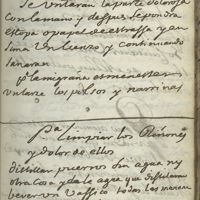 Se untaran la parte dolorosa
con la mano y despues se pondra
estopa o papel de estrassa y en
sima un lienzo y continuando
sanaran
Pa la migraña es menester
untarse los pulsos y narrises
Pa limpiar los Riñones
y dolor de ellos
distilar puerros sin agua ny
otra cosa y de la agua que distilaren
beveran un vassito todas las mañanas